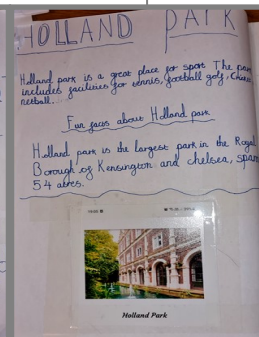 HOLLAND PARK
Holland park is a great place for sport. The park
includes facilities for tennis, football golf, Cricket
netball.
Fun faces about Holland park
Holland park is the largest park in the Royal
Borough of Kensington and chelsea, span
54 acres.
Holland Park